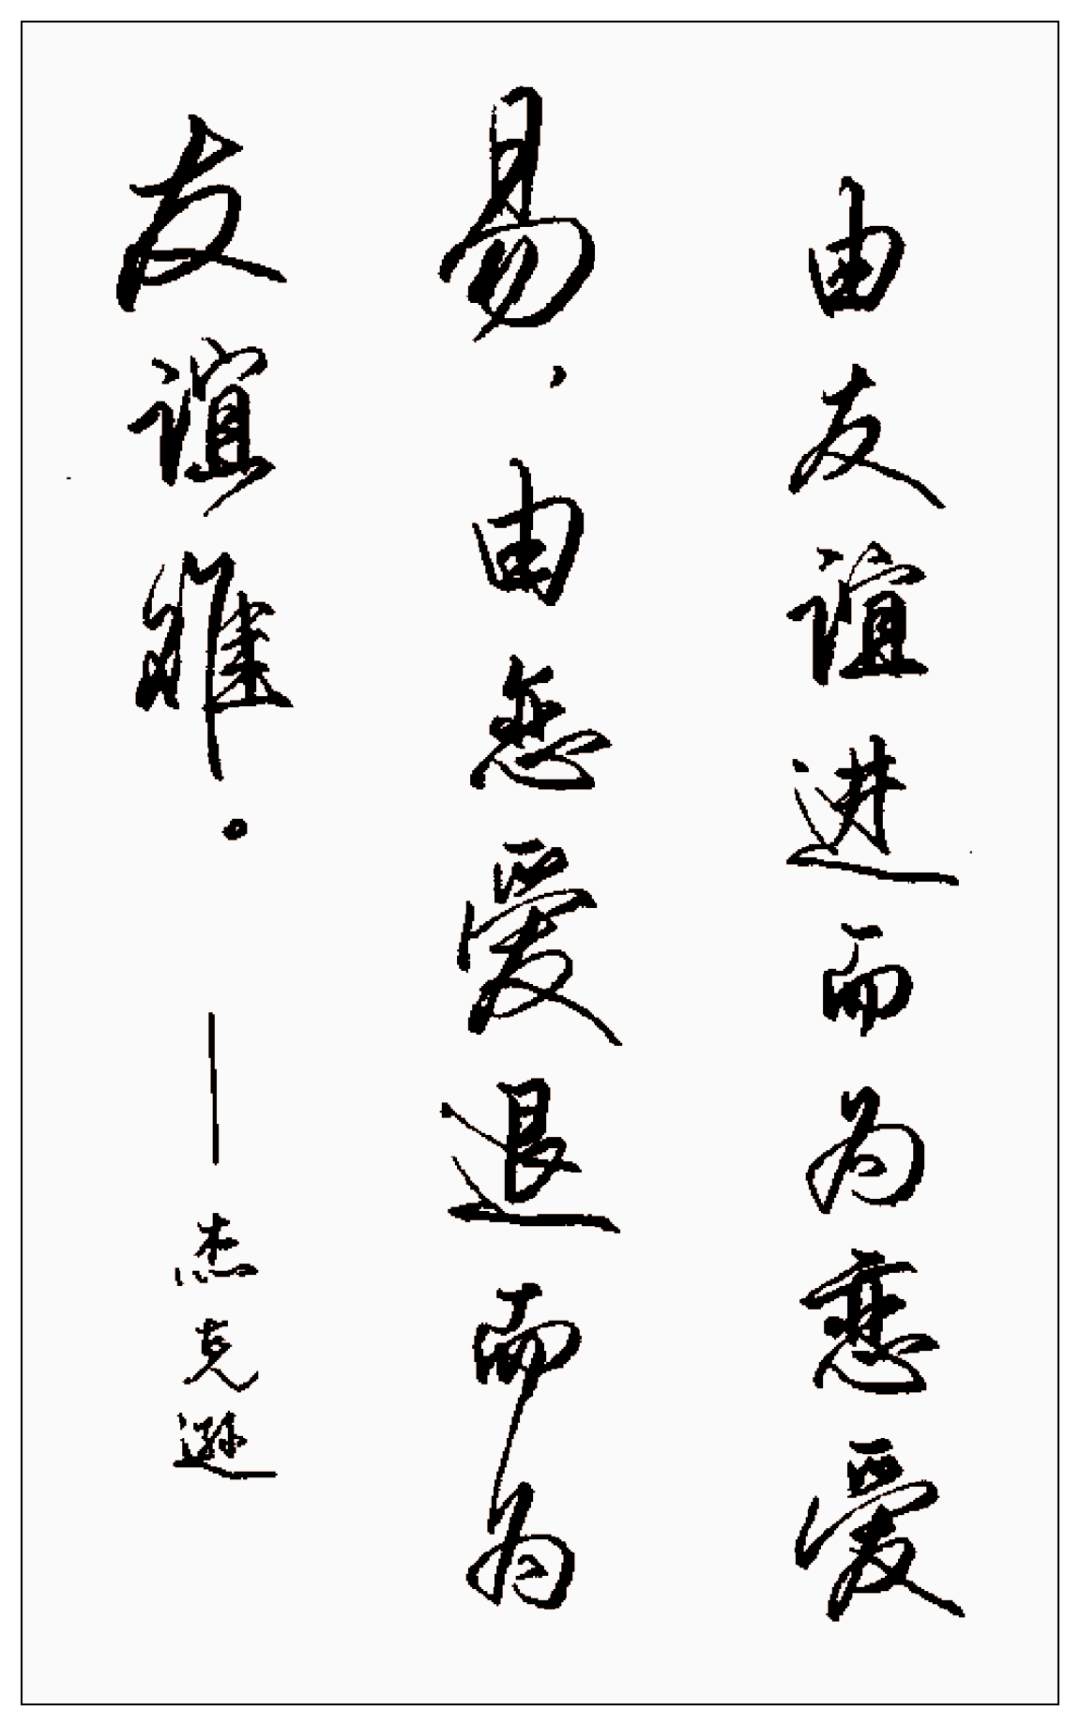 由友谊进而为恋爱
易，由恋爱退而为
友谊难。——杰克逊